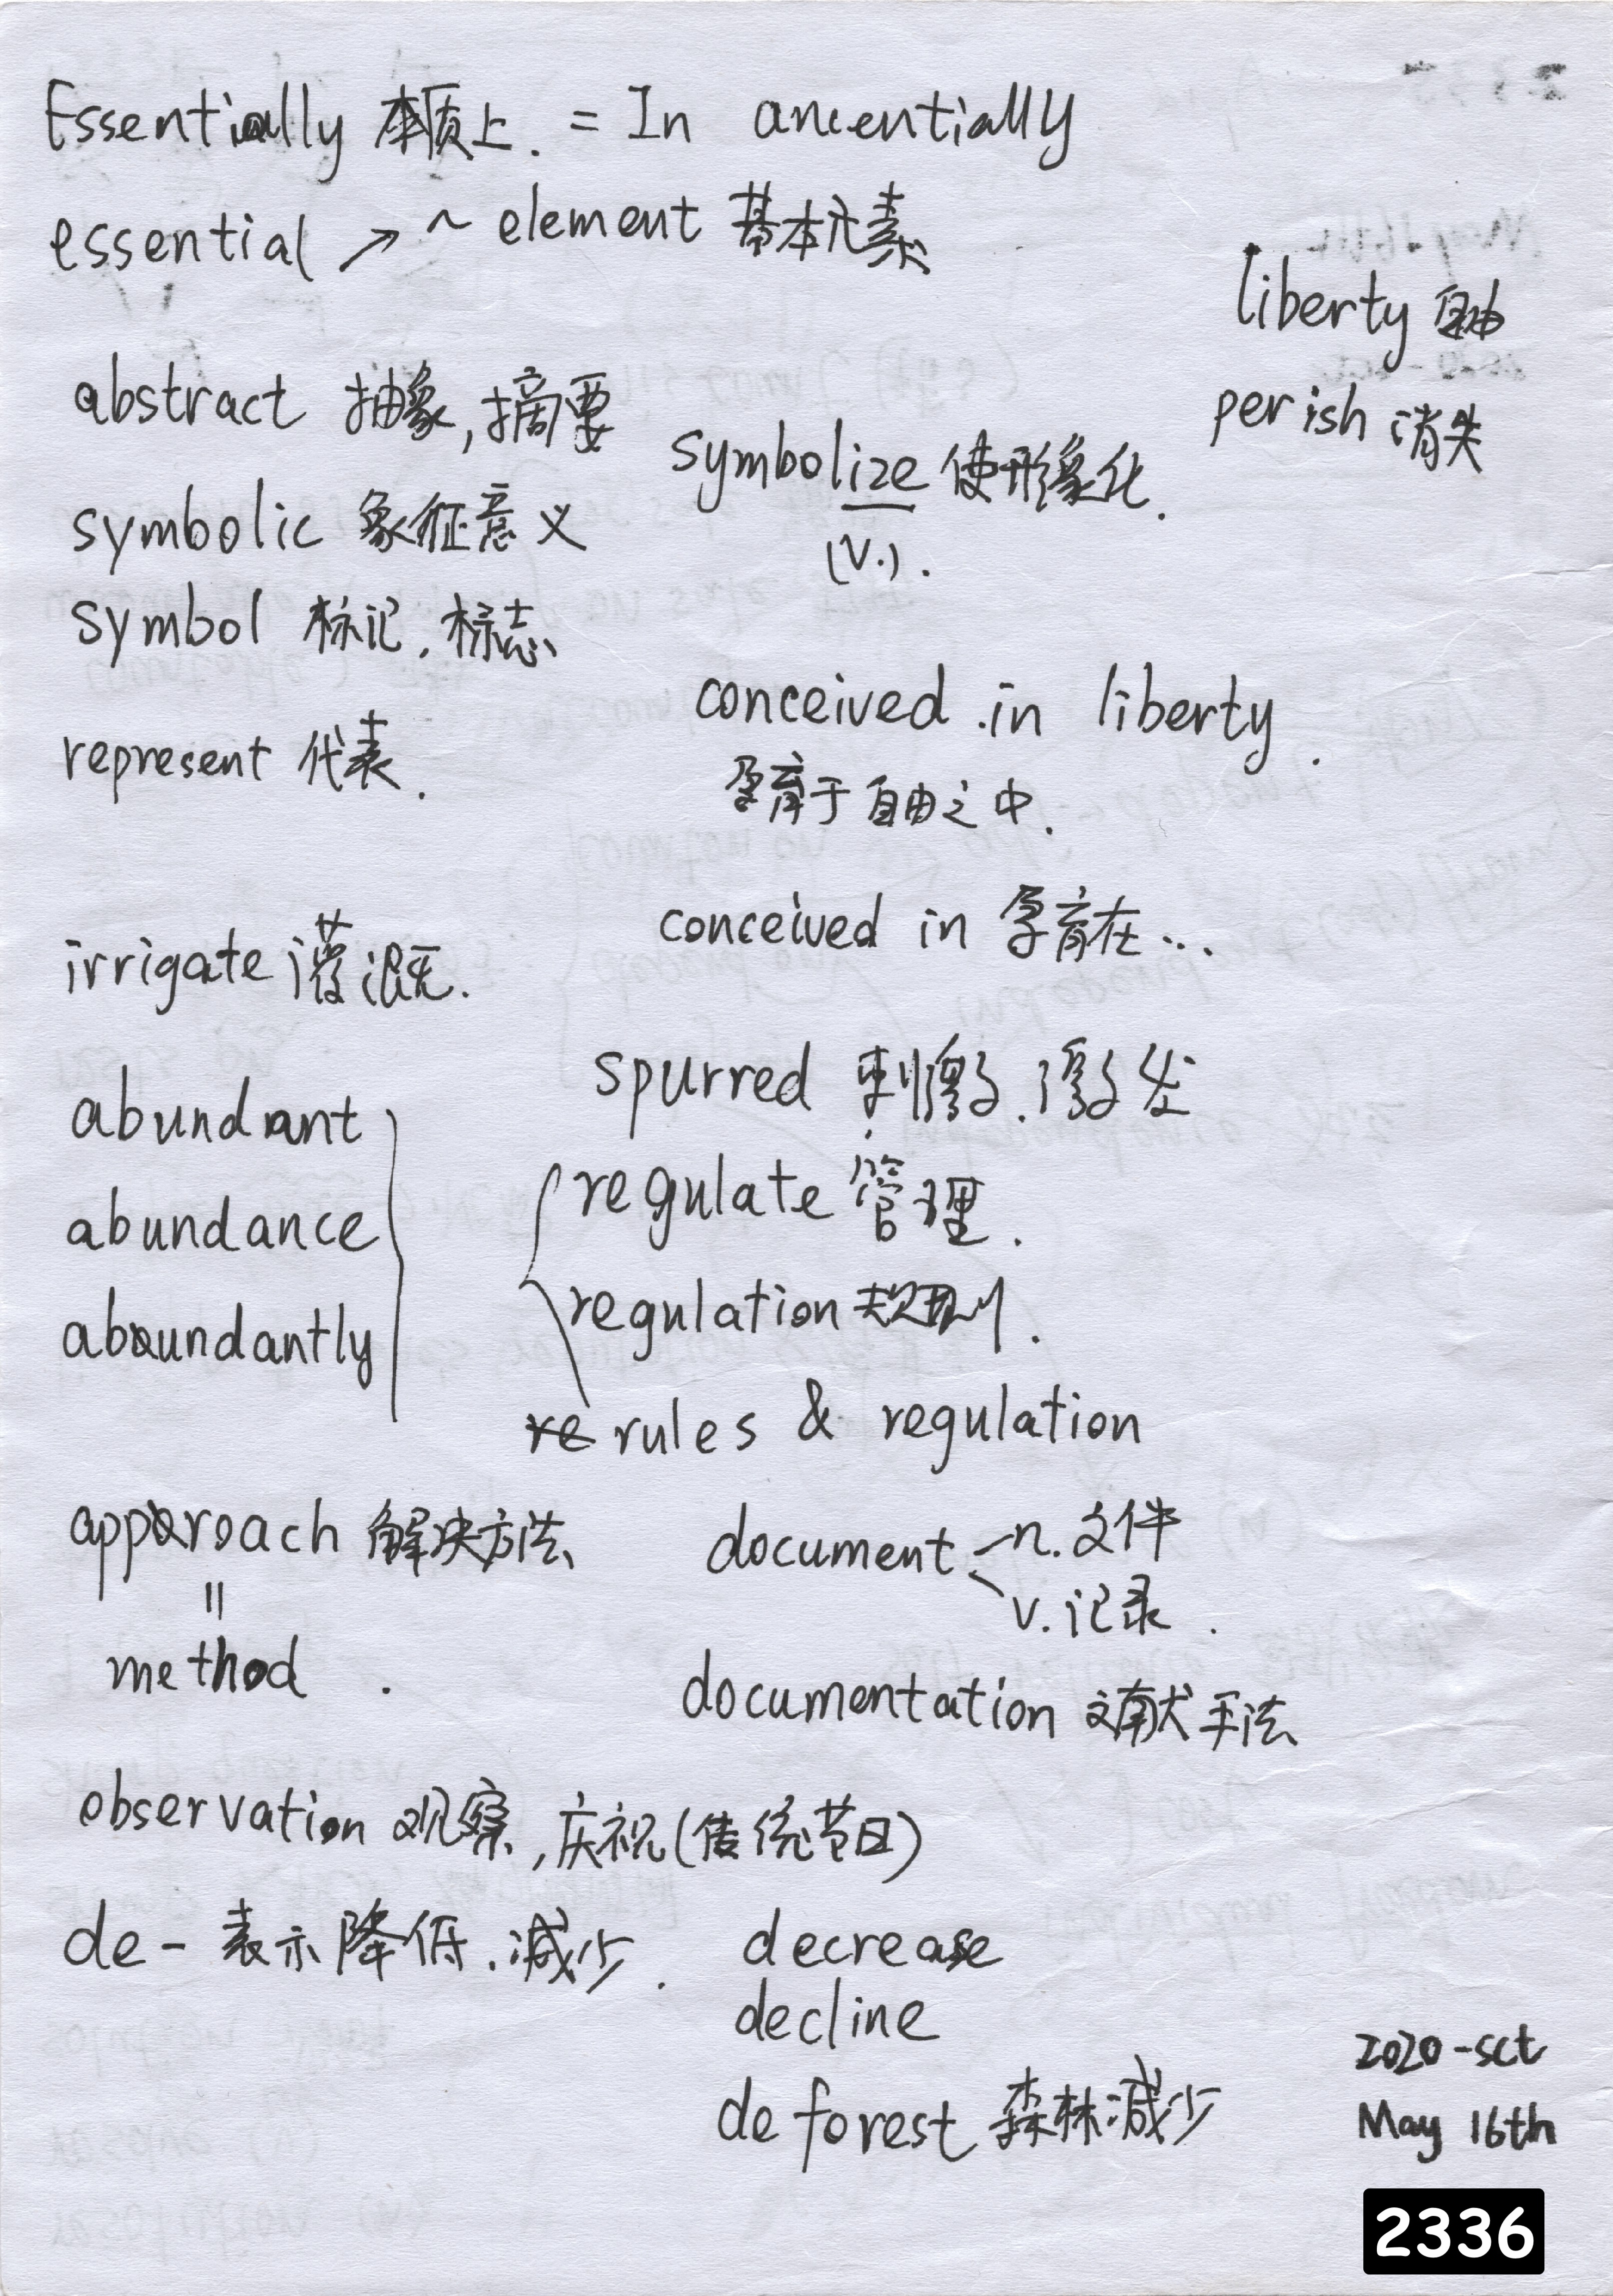 Essentially 本质上. = In ancentially
essential ↗ ~ element 基本元素
liberty 自由
perish 消失
abstract 抽象,摘要
symbolize 使形象化.
(v.).
symbolic 象征意义
symbol 标记.标志
represent 代表.
conceived in liberty.
孕育于自由之中.
conceived in 孕育在...
irrigate 灌溉.
spurred 刺激.激发
abundant
abundance
abundantly
regulate 管理.
regulation 规则.
re rules & regulation
approach 解决方法
=
method.
document n.文件
v.记录.
documentation 文献手法
observation 观察,庆祝(传统节日)
de- 表示降低.减少.
decrease
decline
deforest 森林减少
2020-sct
May 16th
2336